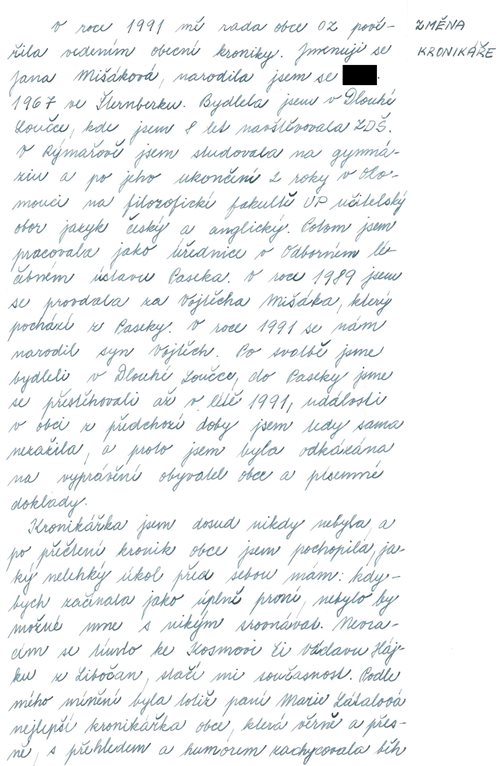 V roce 1991 mě rada obce OZ pově-
řila vedením obecní kroniky. Jmenuji se
Jana Mišáková, narodila jsem se
1967 ve Šternberku. Bydlela jsem v Dlouhé
Loučce, kde jsem 8 let navštěvovala ZDŠ.
V Rýmařově jsem studovala na gymná-
ziu a po jeho ukončení 2 roky v Olo-
mouci na filozofické fakultě UP učitelský
obor jazyk český a anglický. Potom jsem
pracovala jako úřednice v Odborném lé-
čebném ústavu Paseka. V roce 1989 jsem
se provdala za Vojtěcha Mišáka, který
pochází z Paseky. V roce 1991 se nám
narodil syn Vojtěch. Po svatbě jsme
bydleli v Dlouhé Loučce, do Paseky jsme
se přestěhovali až v létě 1991, události
v obci z předchozí doby jsem tedy sama
nezažila, a proto jsem byla odkázána
na vyprávění obyvatel obce a písemné
doklady.
Kronikářka jsem dosud nikdy nebyla a
po přečtení kronik obce jsem pochopila, ja-
ký nelehký úkol před sebou mám: kdy-
bych začínala jako úplně první, nebylo by
možné mne s nikým srovnávat. Nevra-
cím se tímto ke Kosmovi či Václavu Háj-
ku z Libočan, stačí mi současnost. Podle
mého mínění byla totiž paní Marie Látalová
nejlepší kronikářka obce, která věrně a přes-
ně, s přehledem a humorem zachycovala běh
ZMĚNA
KRONIKÁŘE